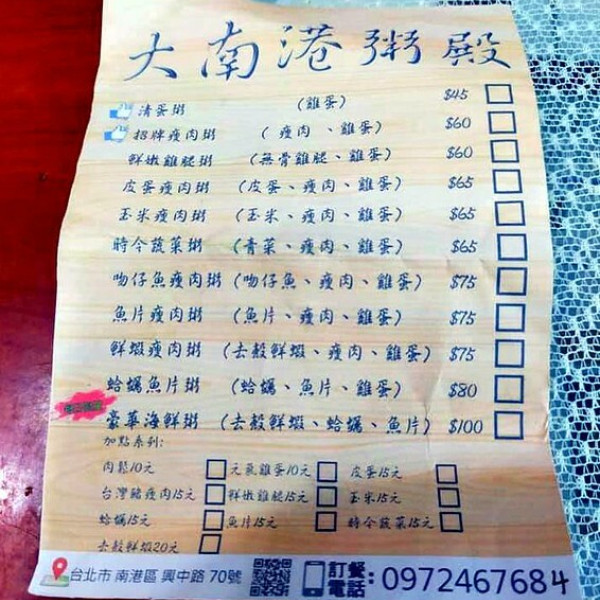 大南港粥殿
清蛋粥 (雞蛋) $45
招牌瘦肉粥 (瘦肉、雞蛋) $60
鮮嫩雞腿粥 (無骨雞腿、雞蛋) $60
皮蛋瘦肉粥 (皮蛋、瘦肉、雞蛋) $65
玉米瘦肉粥 (玉米、瘦肉、雞蛋) $65
時令蔬菜粥 (青菜、瘦肉、雞蛋) $65
吻仔魚瘦肉粥 (吻仔魚、瘦肉、雞蛋) $75
魚片瘦肉粥 (魚片、瘦肉、雞蛋) $75
鮮蝦瘦肉粥 (去殼鮮蝦、瘦肉、雞蛋) $75
蛤蠣魚片粥 (蛤蠣、魚片、雞蛋) $80
豪華海鮮粥 (去殼鮮蝦、蛤蠣、魚片) $100
加點系列:
肉鬆10元 元氣雞蛋10元 皮蛋15元
台灣豬瘦肉15元 鮮嫩雞腿15元 玉米15元
蛤蠣15元 魚片15元 時令蔬菜15元
去殼鮮蝦20元
台北市 南港區 興中路 70號 訂餐電話:0972467684